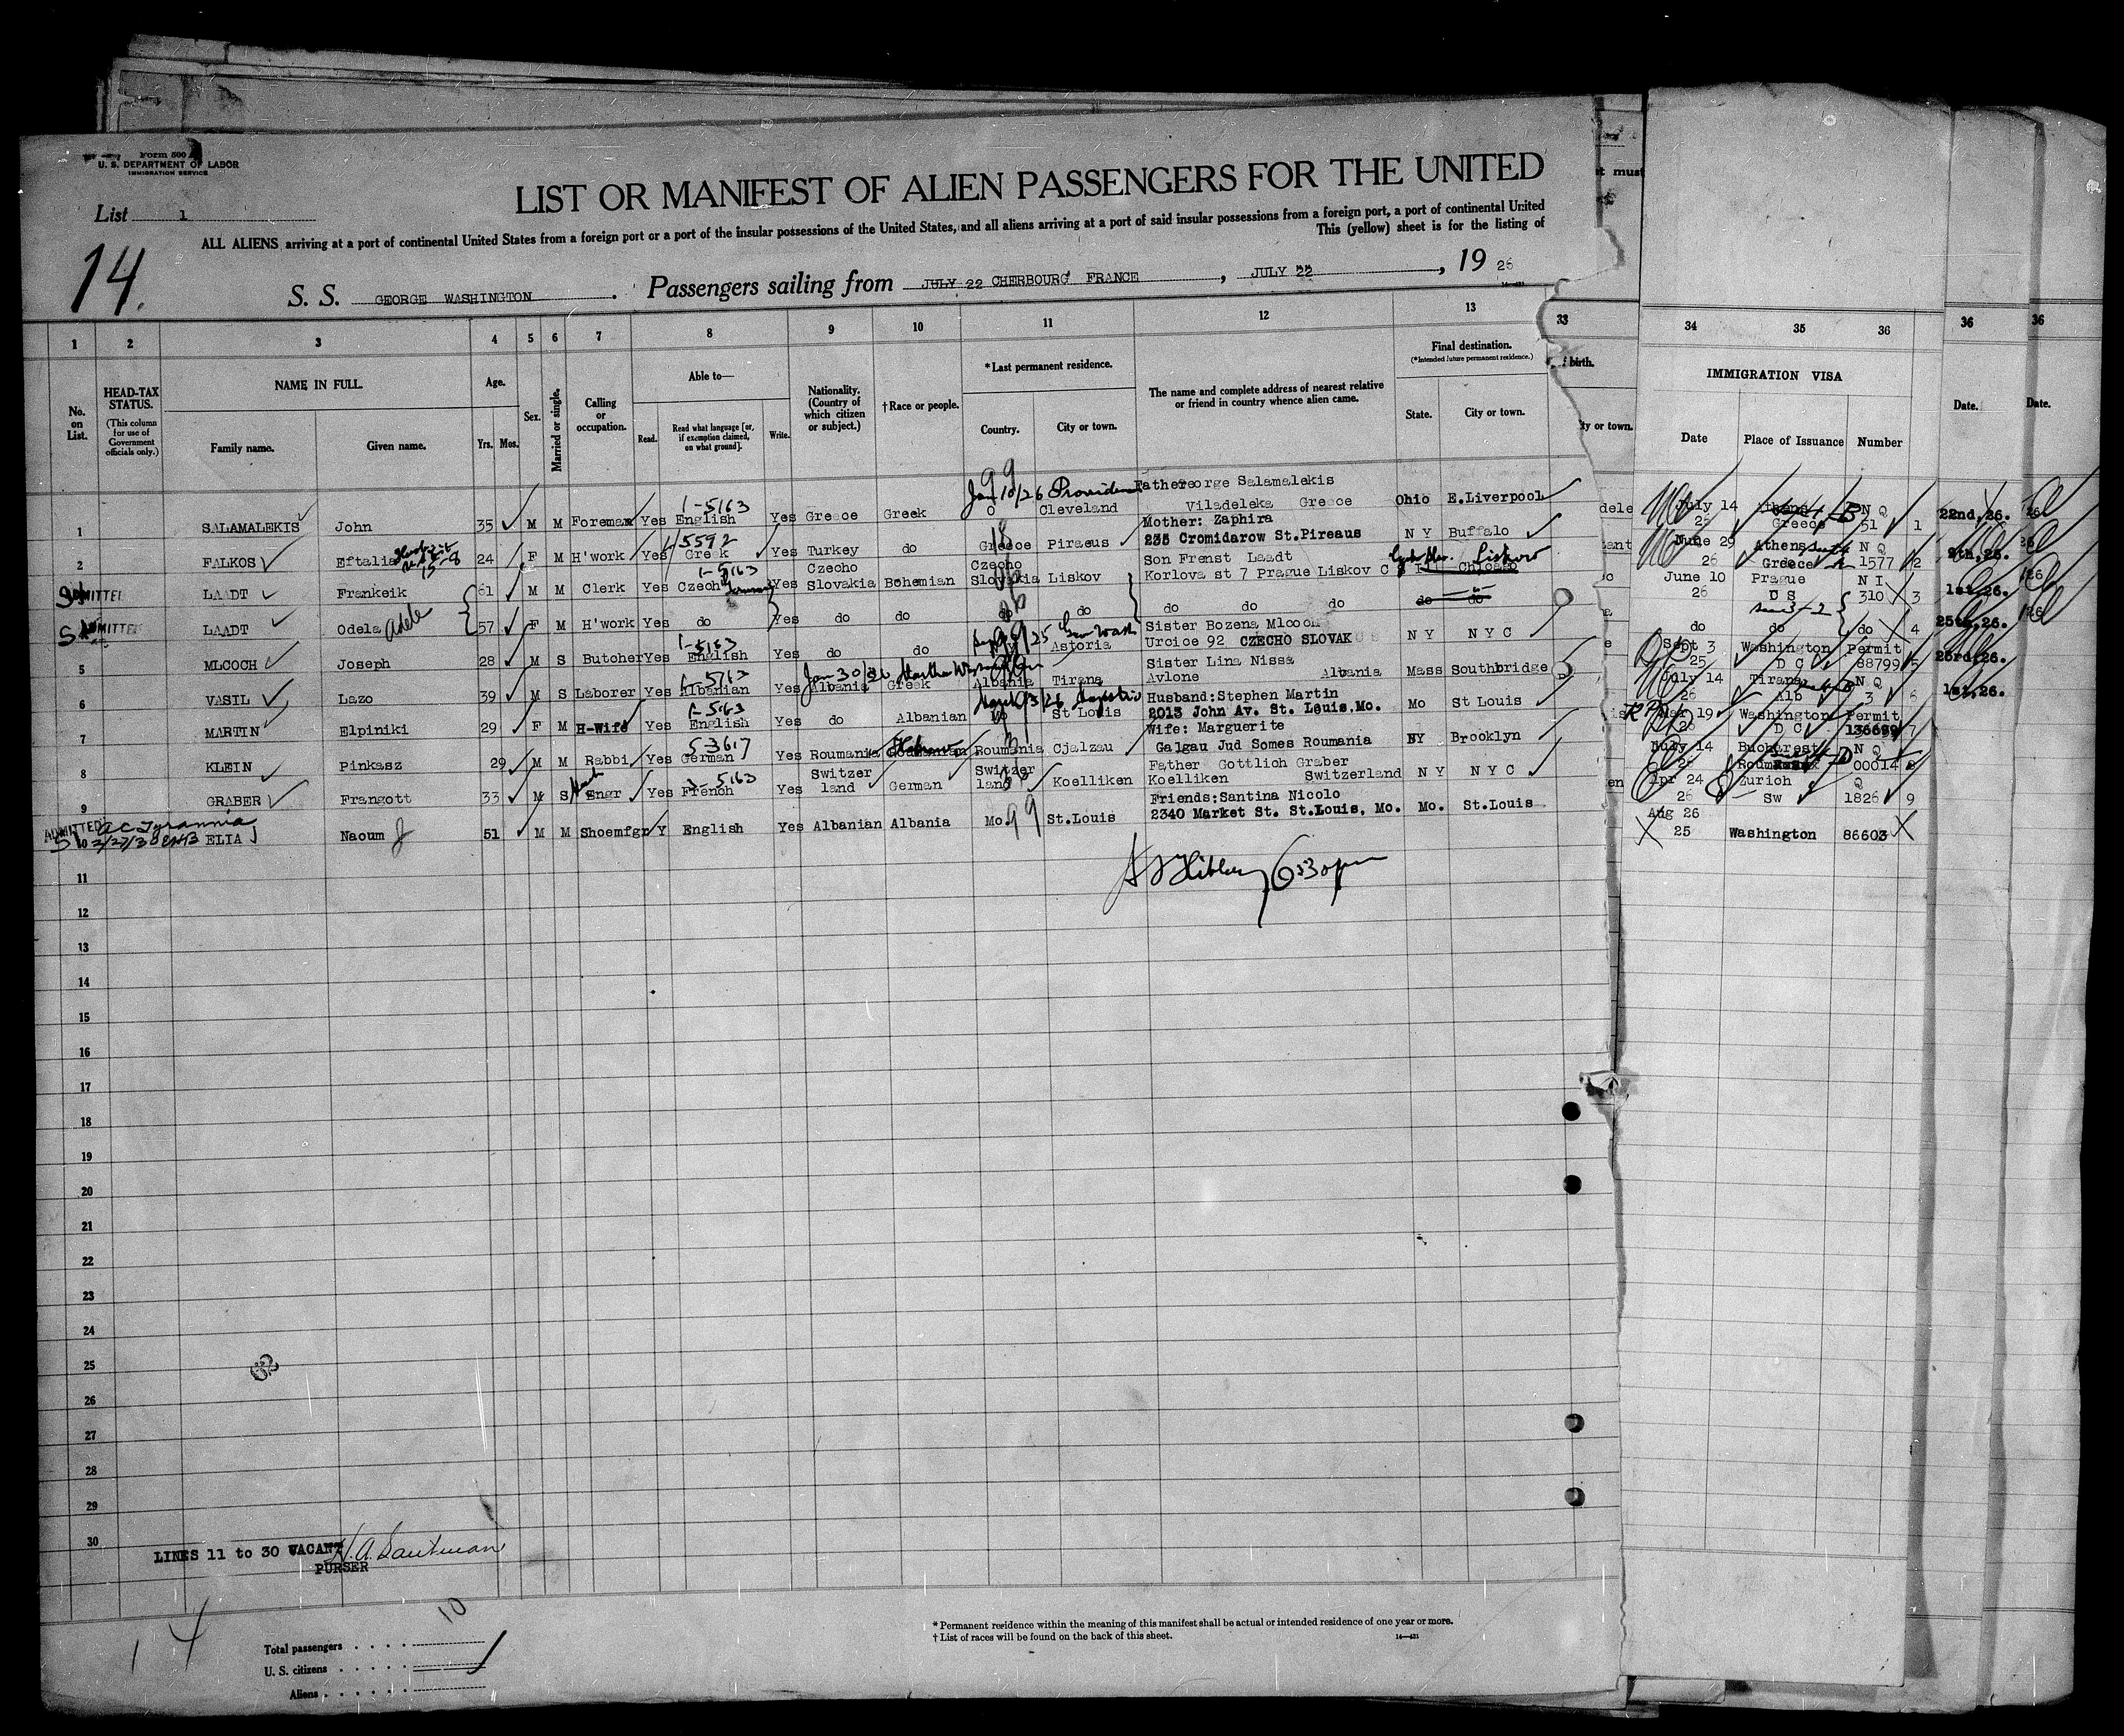 Form 500
U. S. DEPARTMENT OF LABOR
IMMIGRATION SERVICE
List 1
14.
LIST OR MANIFEST OF ALIEN PASSENGERS FOR THE UNITED
ALL ALIENS arriving at a port of continental United States from a foreign port or a port of the insular possessions of the United States, and all aliens arriving at a port of said insular possessions from a foreign port, a port of continental United
This (yellow) sheet is for the listing of
S. S. GEORGE WASHINGTON . Passengers sailing from JULY 22 CHERBOURG FRANCE , JULY 22 , 19 26
1 2 3 4 5 6 7 8 9 10 11 12 13 33 34 35 36 36 36
No. on List.
HEAD-TAX STATUS.
(This column for use of Government officials only.)
NAME IN FULL.
Family name. Given name.
Age.
Yrs. Mos.
Sex.
Married or single.
Calling or occupation.
Able to—
Read. Read what language [or, if exemption claimed, on what ground]. Write.
Nationality. (Country of which citizen or subject.)
†Race or people.
*Last permanent residence.
Country. City or town.
The name and complete address of nearest relative or friend in country whence alien came.
Final destination.
(*Intended future permanent residence.)
State. City or town.
birth.
ty or town.
IMMIGRATION VISA
Date Place of Issuance Number
Date. Date.
Jan 10/26 Providence
1-5163
1 SALAMALEKIS John 35 M M Foreman Yes English Yes Greece Greek O Cleveland Father George Salamalekis Viladeleka Greece Ohio E.Liverpool July 14 25 Athens Greece N Q 51 1 22nd, 26.
5592
2 FALKOS Eftalia 24 F M H'work Yes Greek Yes Turkey do Greece Piraeus Mother: Zaphira 235 Cromidarow St.Pireaus N Y Buffalo June 29 26 Athens Greece N Q 1577 2 9th, 26.
1-5163
ADMITTED LAADT Frankeik 61 M M Clerk Yes Czech German Yes Czecho Slovakia Bohemian Czecho Slovakia Liskov Son Frenst Laadt Korlova st 7 Prague Liskov Chicago June 10 26 Prague N I 310 3 1st, 26.
ADMITTED LAADT Odela Adele 57 F M H'work Yes do Yes do do do do do do do do do do do do 4 25th, 26.
1-5163
5 MLCOCH Joseph 28 M S Butcher Yes English Yes do do N Y Astoria Sister Bozena Mlcoch Urcice 92 CZECHO SLOVAK N Y N Y C Sept 3 25 Washington D C Permit 88799 5 23rd, 26.
Jan 30/26 Martha Washington
1-5163
6 VASIL Lazo 39 M S Laborer Yes Albanian Yes Albania Greek Albania Tirana Sister Lina Nissa Avlone Albania Mass Southbridge July 14 26 Tirana Alb N Q 3 6 1st, 26.
1-5163
7 MARTIN Elpiniki 29 F M H-Wife Yes English Yes do Albanian St Louis Husband:Stephen Martin 2013 John Av. St. Louis,Mo. Mo St Louis Mar 19 Washington D C Permit 136699 7
5-3617
8 KLEIN Pinkasz 29 M M Rabbi Yes German Yes Roumania Hebrew Roumania Cjalzau Wife: Marguerite Galgau Jud Somes Roumania NY Brooklyn July 14 26 Bucharest N Q 00014 8
5163
9 GRABER Frangott 33 M S Engr Yes French Yes Switzer land German Switzer land Koelliken Father Gottlich Graber Koelliken Switzerland N Y N Y C Apr 24 26 Zurich Sw Q 1826 9
ADMITTED
10 ELIA Naoum 51 M M Shoemfgr Y English Yes Albanian Albania Mo. St.Louis Friends:Santina Nicolo 2340 Market St. St.Louis, Mo. Mo. St.Louis Aug 26 25 Washington 86603
6:30 pm
11
12
13
14
15
16
17
18
19
20
21
22
23
24
25
26
27
28
29
30
LINES 11 to 30 VACANT
PURSER
14
10
Total passengers
U. S. citizens
Aliens
* Permanent residence within the meaning of this manifest shall be actual or intended residence of one year or more.
† List of races will be found on the back of this sheet.